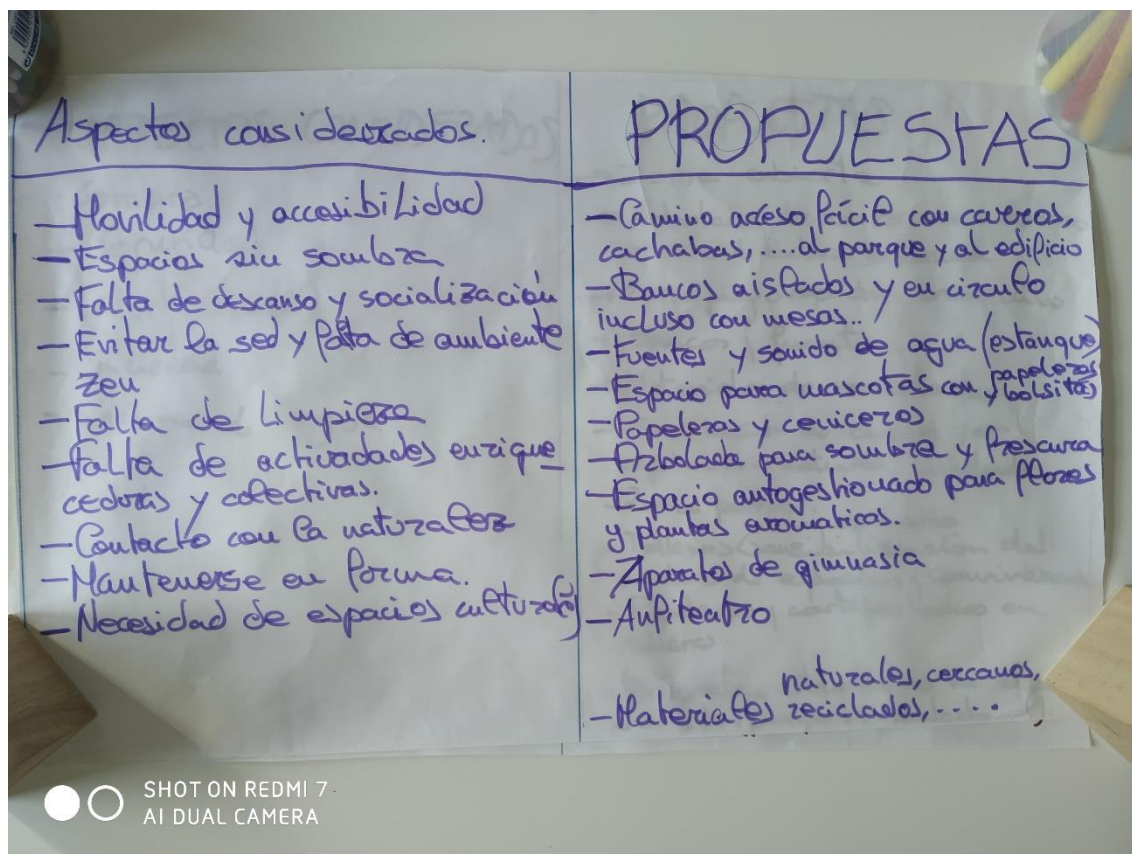 Aspectos considerados.
—Movilidad y accesibilidad
—Espacios sin sombra
—Falta de descanso y socialización
—Evitar la sed y falta de ambiente
zen
—Falta de limpieza
—Falta de actividades enrique_
cedoras y colectivas.
—Contacto con la naturaleza
—Mantenerse en forma.
—Necesidad de espacios culturales
PROPUESTAS
—Camino acceso fácil con
cachabas,....al parque y al edificio
—Bancos aislados y en circulo
incluso con mesas..
—Fuentes y sonido de agua (estanque)
—Espacio para mascotas con papeleras
y bolsitas
—Papeleras y ceniceros
—Arbolada para sombra y frescura
—Espacio autogestionado para flores
y plantas aromaticas.
—Aparatos de gimnasia
—Anfiteatro
naturales, cercanos,
—Materiales reciclados,....
SHOT ON REDMI 7
AI DUAL CAMERA